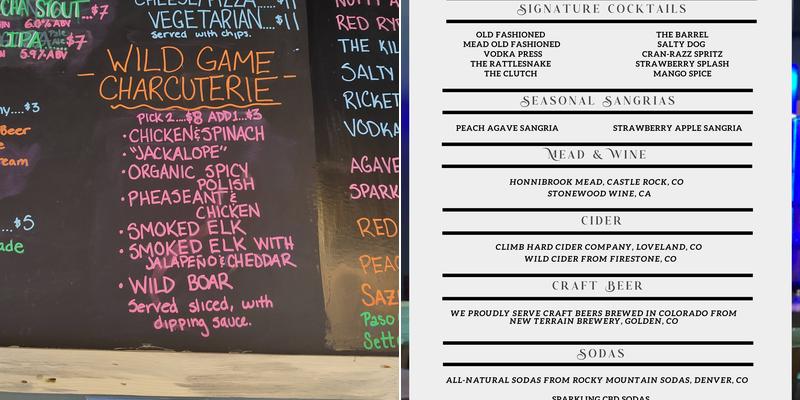 CHA STOUT...$7
6.0% ABV
IPA...$7
5.9% ABV
ny....$3
Beer
ream
...$5
ade
CHEESE/PIZZA...
VEGETARIAN...$11
Served with chips.
WILD GAME
CHARCUTERIE
PICK 2....$8 ADD 1...$3
• CHICKEN & SPINACH
• "JACKALOPE"
• ORGANIC SPICY
POLISH
• PHEASEANT &
CHICKEN
• SMOKED ELK
• SMOKED ELK WITH
JALAPEÑO & CHEDDAR
• WILD BOAR
Served sliced, with
dipping sauce.
RED RY
THE KIL
SALTY
RICKET
VODKA
AGAVE
SPARK
RED
PEAC
SAZ
Paso
Sett
SIGNATURE COCKTAILS
OLD FASHIONED
MEAD OLD FASHIONED
VODKA PRESS
THE RATTLESNAKE
THE CLUTCH
THE BARREL
SALTY DOG
CRAN-RAZZ SPRITZ
STRAWBERRY SPLASH
MANGO SPICE
SEASONAL SANGRIAS
PEACH AGAVE SANGRIA
STRAWBERRY APPLE SANGRIA
MEAD & WINE
HONNIBROOK MEAD, CASTLE ROCK, CO
STONEWOOD WINE, CA
CIDER
CLIMB HARD CIDER COMPANY, LOVELAND, CO
WILD CIDER FROM FIRESTONE, CO
CRAFT BEER
WE PROUDLY SERVE CRAFT BEERS BREWED IN COLORADO FROM
NEW TERRAIN BREWERY, GOLDEN, CO
SODAS
ALL-NATURAL SODAS FROM ROCKY MOUNTAIN SODAS, DENVER, CO
SPARKLING CBD SODAS